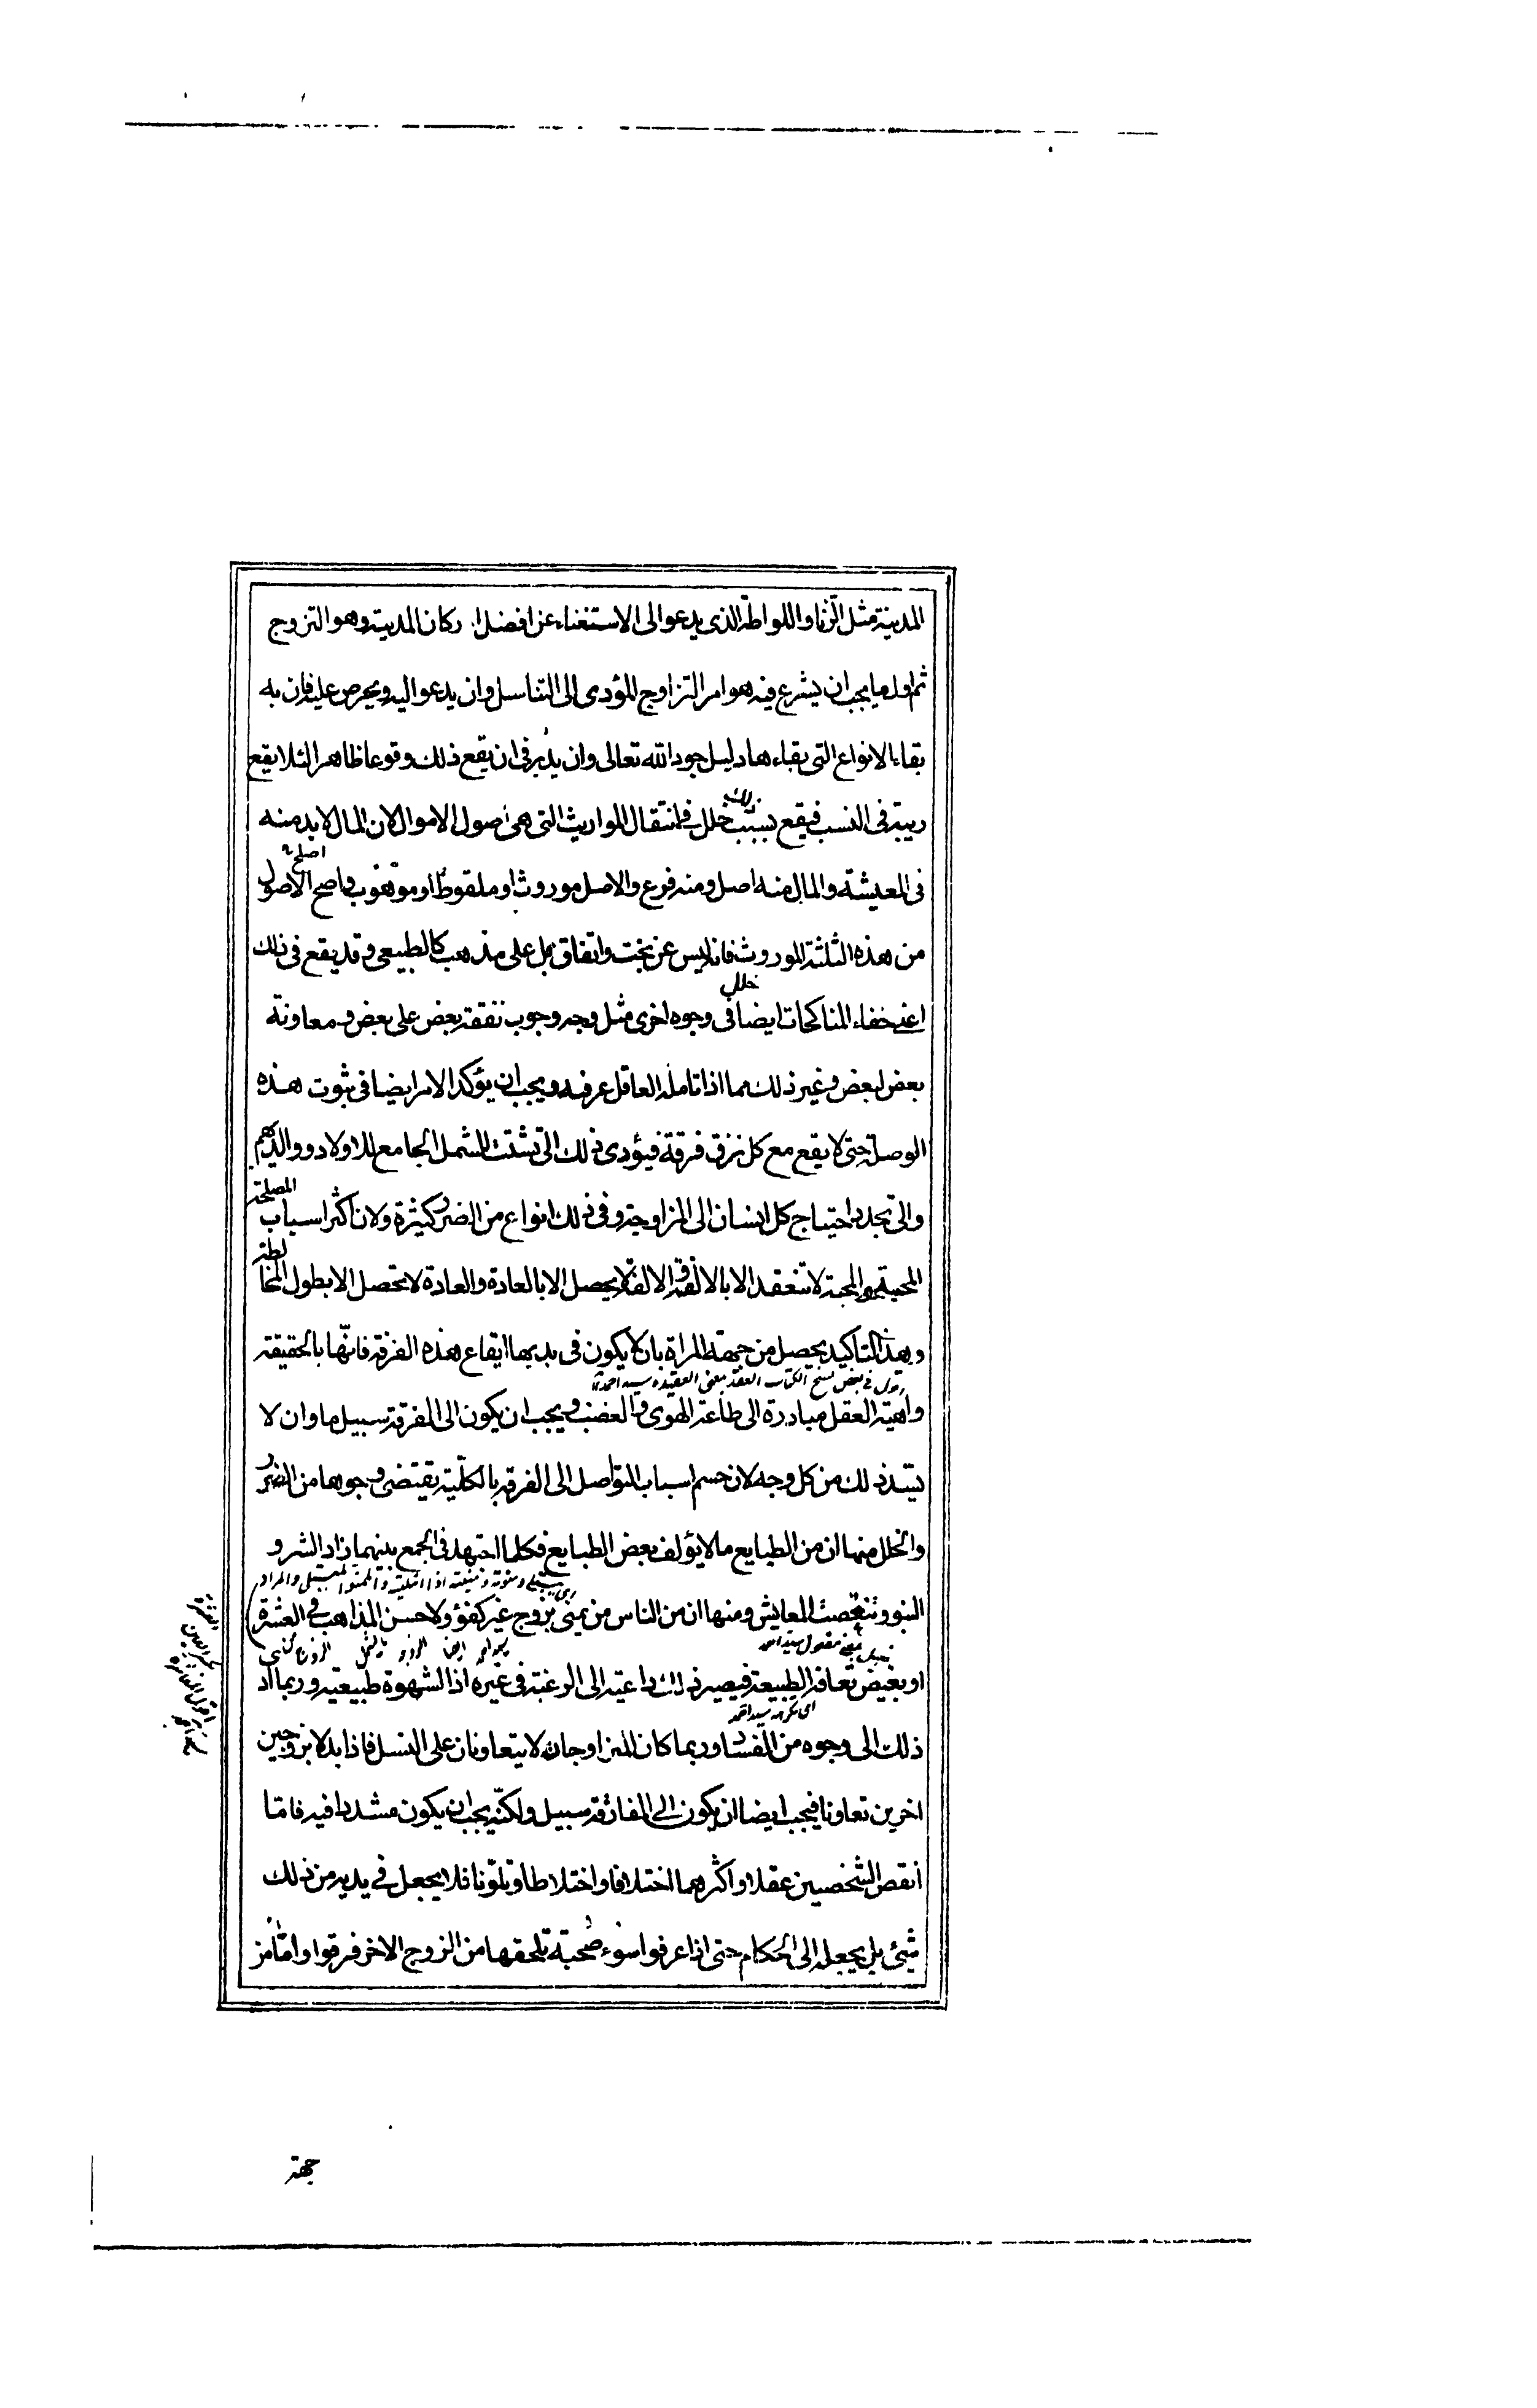 المدينة مثل الزنا واللواطة الذى يدعو الى الاستغناء عن افضل اركان المدينة وهو التزوج
ثم اول ما يجب ان يشرع فيه هو امر التزاوج المؤدى الى التناسل وان يدعو اليه ويحرص عليه فان به
بقاء الانواع التى بقاءها دليل جود الله تعالى وان يدبر فى ان يقع ذلك وقوعا ظاهرا لئلا يقع
ريبة فى النسب فيقع بسبب ذلك خلل فى انتقال المواريث التى هى اصول الاموال لان المال لا بد منه
فى المعيشة والمال منه اصل ومنه فرع والاصل موروث او ملقوط او موهوب واصح الاصول
اصلح
من هذه الثلثة الموروث فانه ليس عن بخت واتفاق بل على مذهب كالطبيعى وقد يقع فى ذلك
اعنى خفاء المناكحات ايضا خلل فى وجوه اخرى مثل وجه وجوب نفقة بعض على بعض ومعاونة
بعض لبعض وغير ذلك مما اذا تامله العاقل عرفه ويجب ان يؤكد الامر ايضا فى ثبوت هذه
الوصلة حتى لا يقع مع كل نزق فرقة فيؤدى ذلك الى تشتت الشمل الجامع للاولاد ووالديهم
والى تجدد احتياج كل انسان الى المزاوجة وفى ذلك انواع من الضرر كثيرة ولان اكثر اسباب المصلحة
المحبة والمحبة لا تنعقد الا بالالفة والالفة لا يحصل الا بالعادة والعادة لا تحصل الا بطول المخالطة
وهذا التاكيد يحصل من جهة المراة بان لا يكون فى يديها ايقاع هذه الفرقة فانها بالحقيقة
فى بعض نسخ الكتاب العقد بمعنى العقيدة سيد احمد
واهية العقل مبادرة الى طاعة الهوى والغضب ويجب ان يكون الى الفرقة سبيل ما وان لا
يسد ذلك من كل وجه لان حسم اسباب التواصل الى الفرقة بالكلية يقتضى وجوها من الضرر
والخلل منها ان من الطبايع ما لا يؤلف بعض الطبايع فكلما اجتهد فى الجمع بينهما زاد الشر و
النبو وتنغصت المعايش ومنها ان من الناس من يمنى بزوج غير كفؤ ولا حسن المذاهب فى العشرة
او بغيض تعافه الطبيعة فيصير ذلك داعية الى الرغبة فى غيره اذ الشهوة طبيعية وربما ادى
اى تكرهه سيد احمد
ذلك الى وجوه من الفساد وربما كان المزاوجان لا يتعاونان على النسل فاذا بدلا بزوجين
اخرين تعاونا فيجب ايضا ان يكون الى المفارقة سبيل ولكنه يجب ان يكون مشددا فيه فاما
انقص الشخصين عقلا واكثرهما اختلافا واختلاطا وتلونا فلا يجعل فى يديه من ذلك
شئ بل يجعله الى الحكام حتى اذا عرفوا سوء صحبة تلحقها من الزوج الاخر فرقوا واما من
جهة